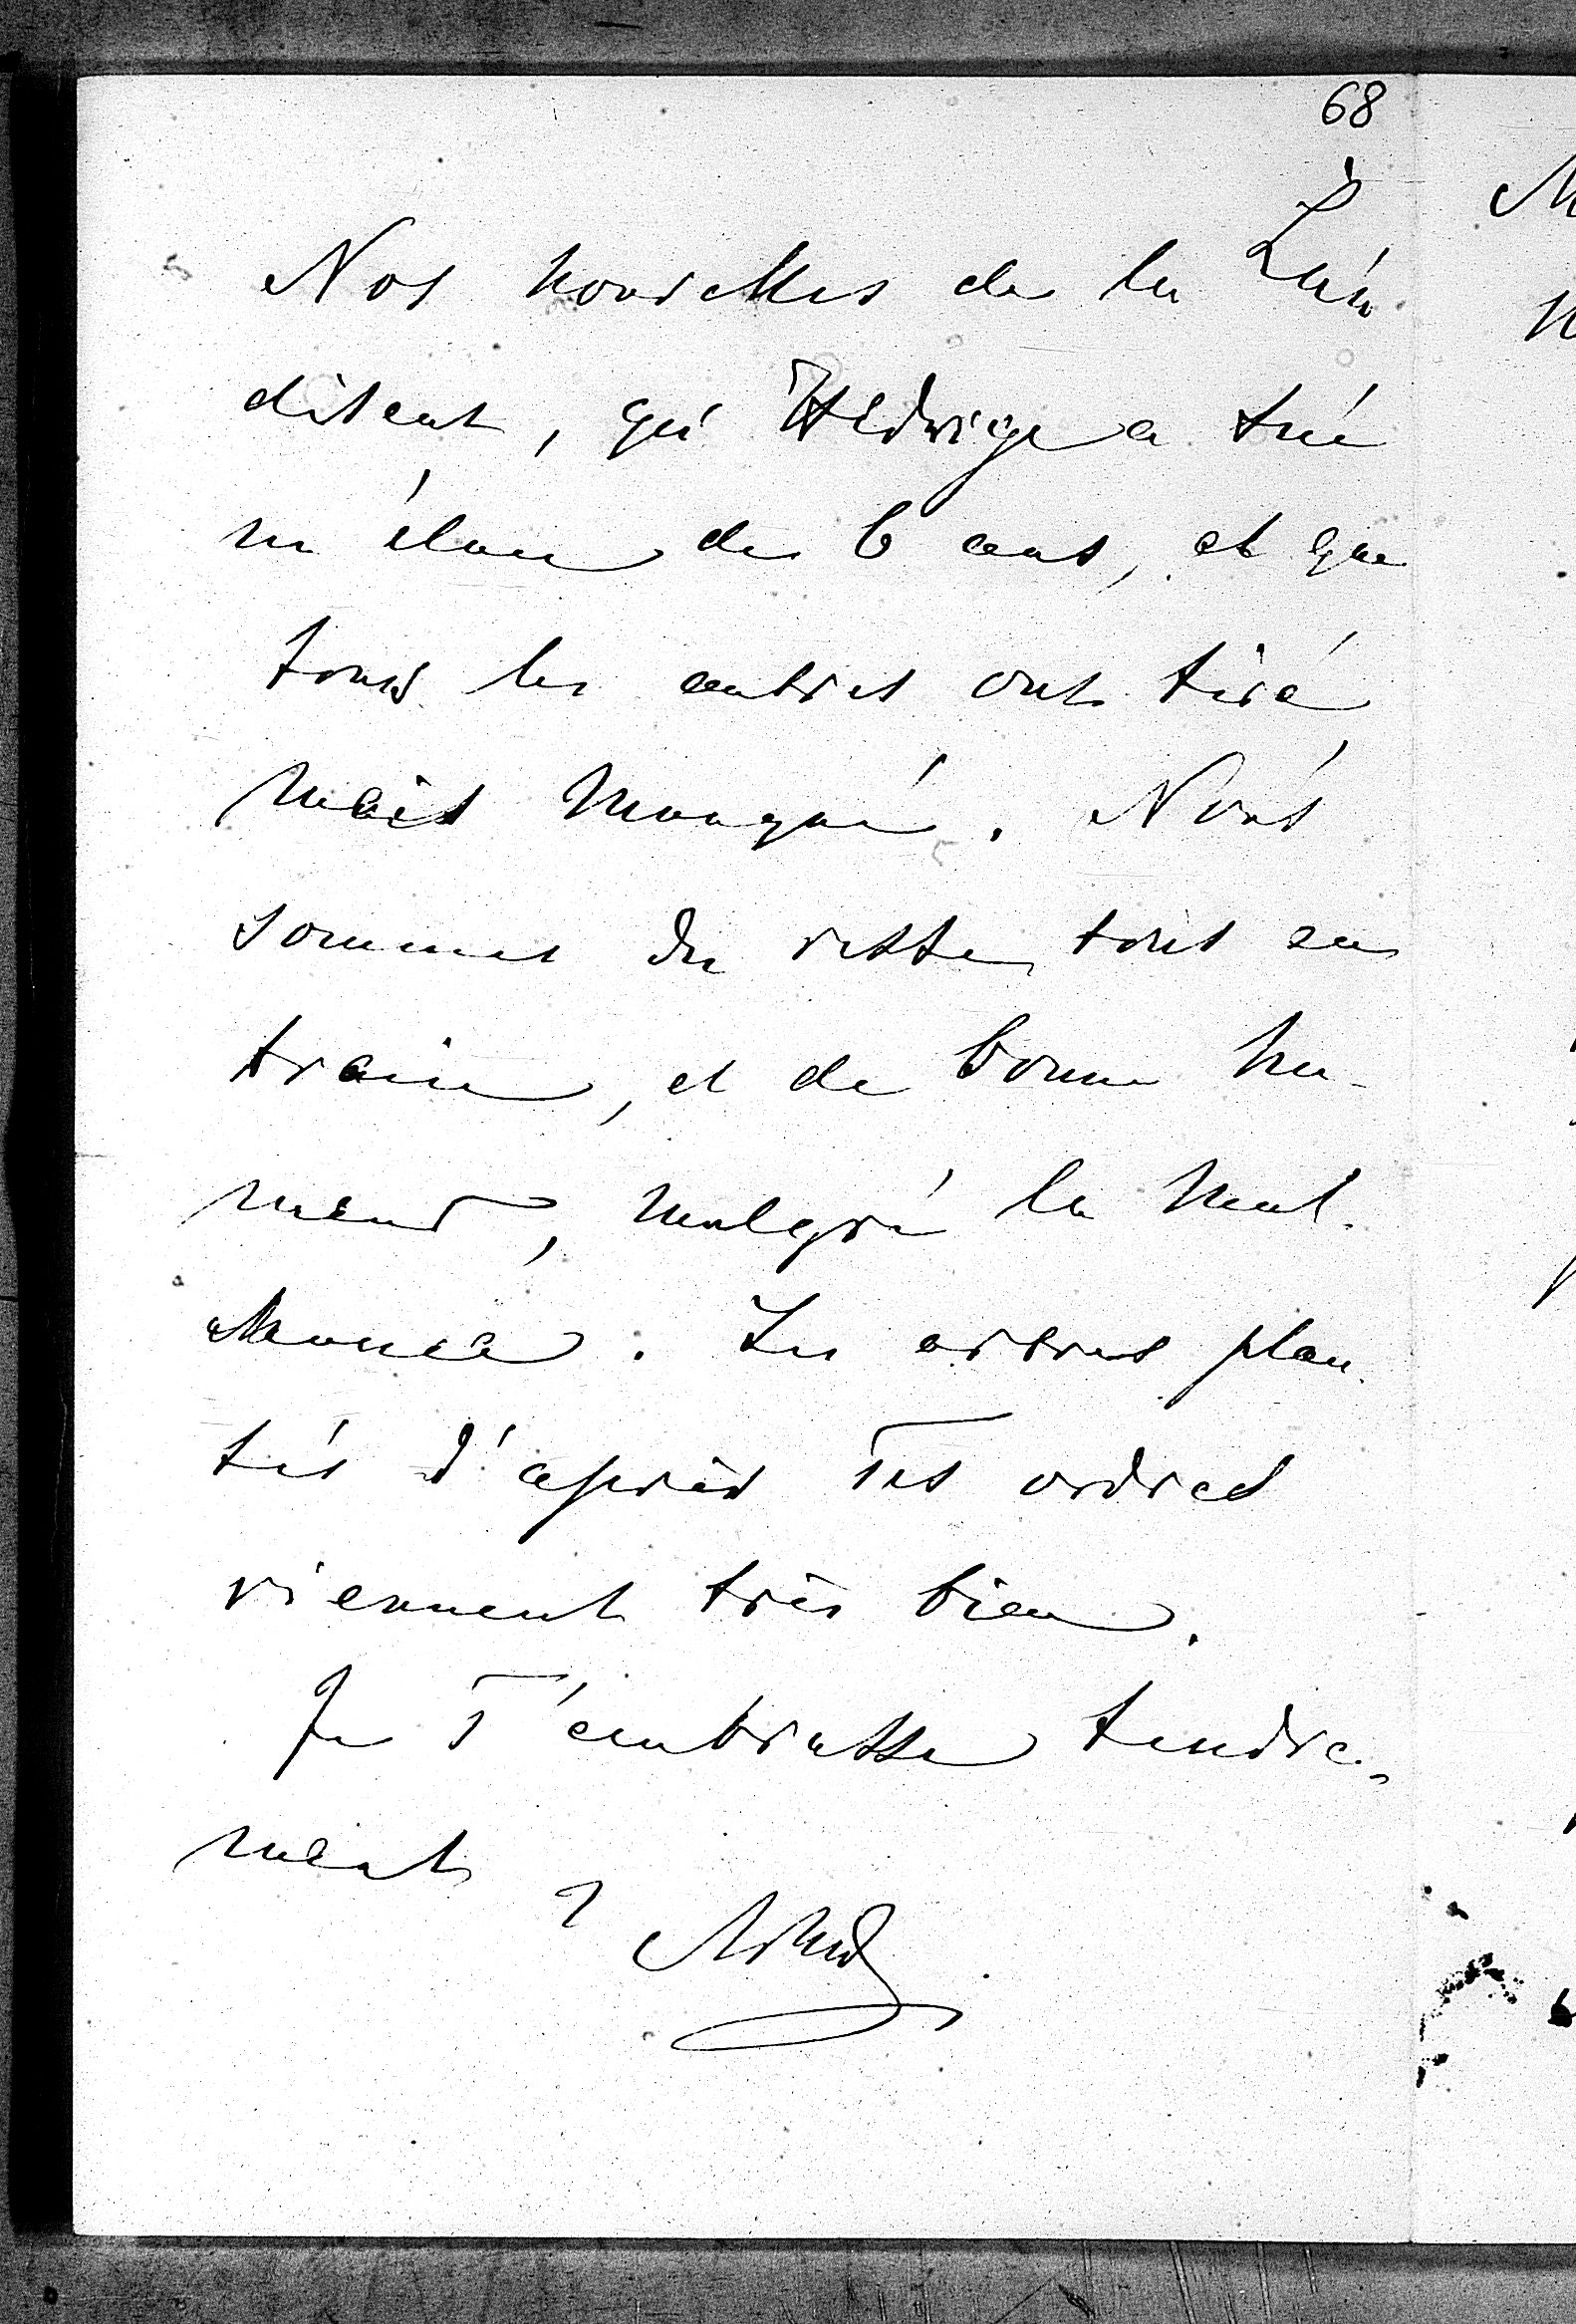 68
Nos nouvelles de la
disent, qu'Hedwige a tué
un élan de 6 ans, et que
tous les autres ont tiré
mais manqué. Nous
sommes du reste tous en
train, et de bonne hu-
meur, malgré la mal-
chance. Les arbres plan-
tés d'après Tes ordres
viennent très bien.
Je T'embrasse tendre-
ment